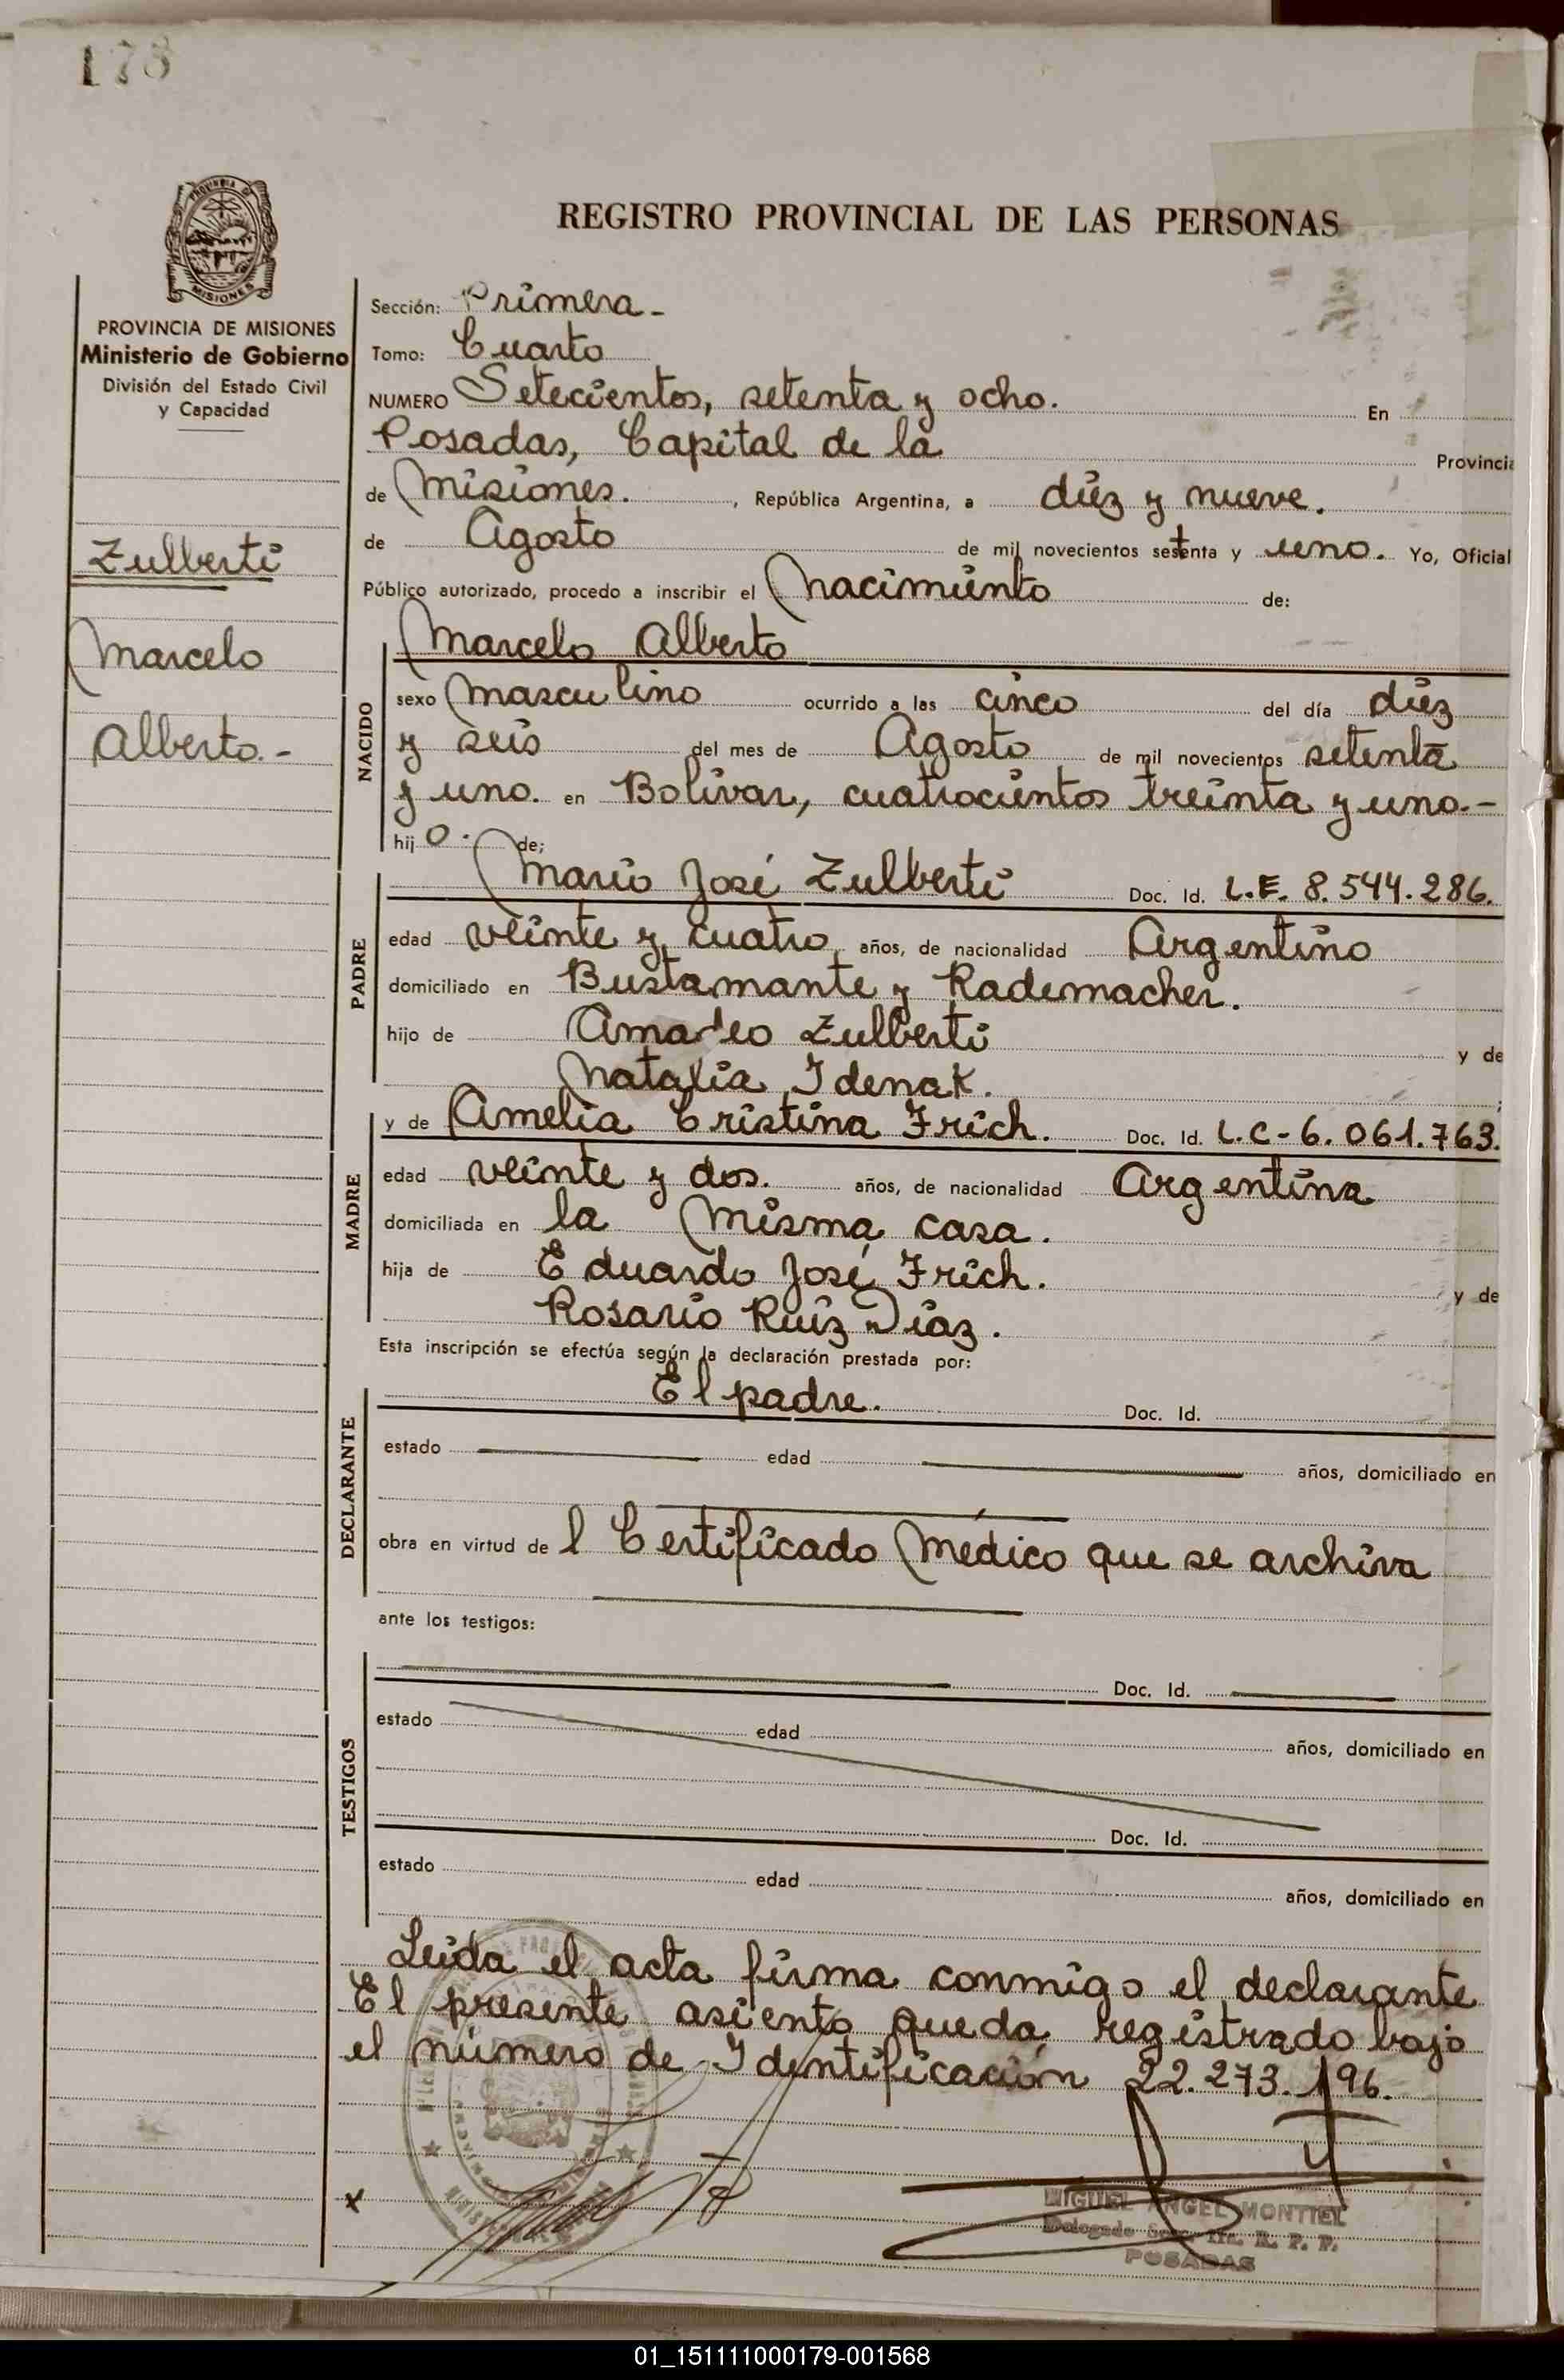 178
PROVINCIA DE
MISIONES
PROVINCIA DE MISIONES
Ministerio de Gobierno
División del Estado Civil
y Capacidad
Zulberti
Marcelo
Alberto.-
REGISTRO PROVINCIAL DE LAS PERSONAS
Sección: Primera-
Tomo: Cuarto
NUMERO Setecientos, setenta y ocho. En
Posadas, Capital de la Provincia
de Misiones. , República Argentina, a diez y nueve.
de Agosto de mil novecientos setenta y uno. Yo, Oficial
Público autorizado, procedo a inscribir el Nacimiento de:
Marcelo Alberto
NACIDO
sexo Masculino ocurrido a las cinco del día diez
y seis del mes de Agosto de mil novecientos setenta
y uno. en Bolívar, cuatrocientos treinta y uno.-
hij o. de;
PADRE
Mario José Zulberti Doc. Id. L.E. 8.544.286.
edad veinte y cuatro años, de nacionalidad Argentino
domiciliado en Bustamante y Rademacher.
hijo de Amadeo Zulberti y de
Natalia Idenak.
MADRE
y de Amelia Cristina Frich. Doc. Id. L.C-6.061.763.
edad veinte y dos. años, de nacionalidad Argentina
domiciliada en la Misma casa.
hija de Eduardo José Frich. y de
Rosario Ruiz Diaz.
Esta inscripción se efectúa según la declaración prestada por:
DECLARANTE
El padre. Doc. Id.
estado edad años, domiciliado en
obra en virtud de l Certificado Médico que se archiva
ante los testigos:
TESTIGOS
Doc. Id.
estado edad años, domiciliado en
Doc. Id.
estado edad años, domiciliado en
Leida el acta firma conmigo el declarante
El presente asiento queda registrado bajo
el número de Identificación 22.273.196.
x
MIGUEL ANGEL MONTIEL
Delegado Secc. 1ra. R. P. P.
POSADAS
01_151111000179-001568